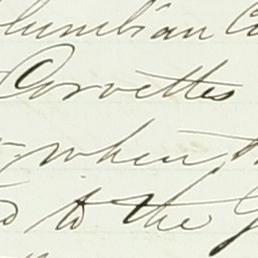 lumbian Co
Corvettes
when, th
to the G